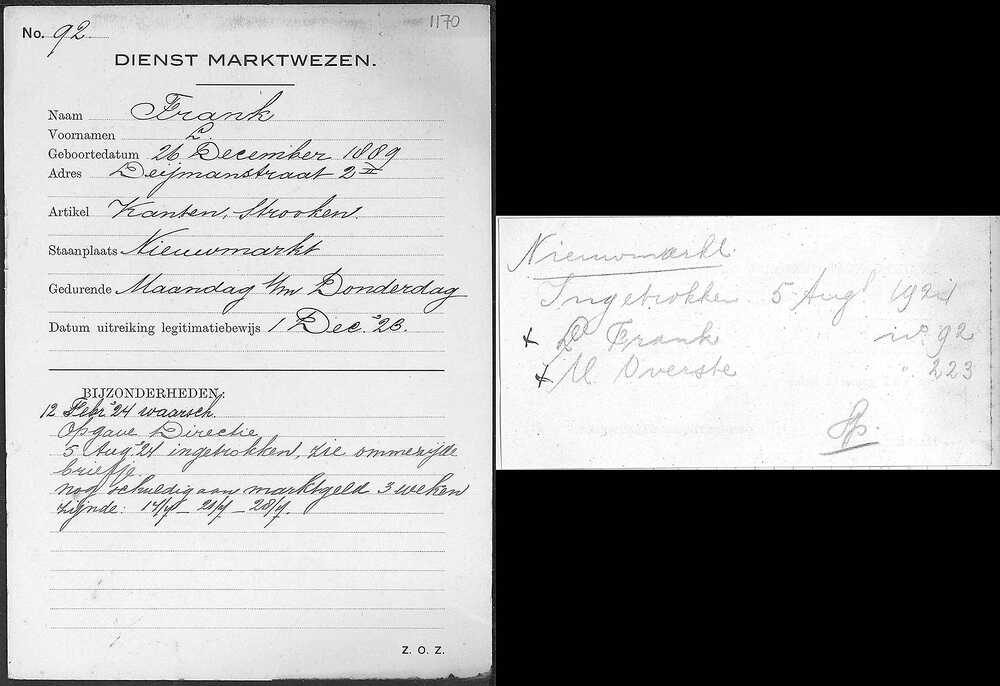 1170
No. 92.
DIENST MARKTWEZEN.
Naam Frank
Voornamen L.
Geboortedatum 26 December 1889
Adres Deijmanstraat 2 II
Artikel Kanten, Strooken.
Staanplaats Nieuwmarkt
Gedurende Maandag t/m Donderdag
Datum uitreiking legitimatiebewijs 1 Dec. '23.
BIJZONDERHEDEN:
12 Febr. '24 waarsch.
Opgave Directie
5 Aug. '24 ingetrokken, zie ommezijde
briefje.
nog schuldig aan marktgeld 3 weken
zijnde: 14/7 – 21/7 – 28/7.
Z. O. Z.
Nieuwmarkt
Ingetrokken 5 Aug. 1924
x L. Frank no. 92
x M. Overste " 223